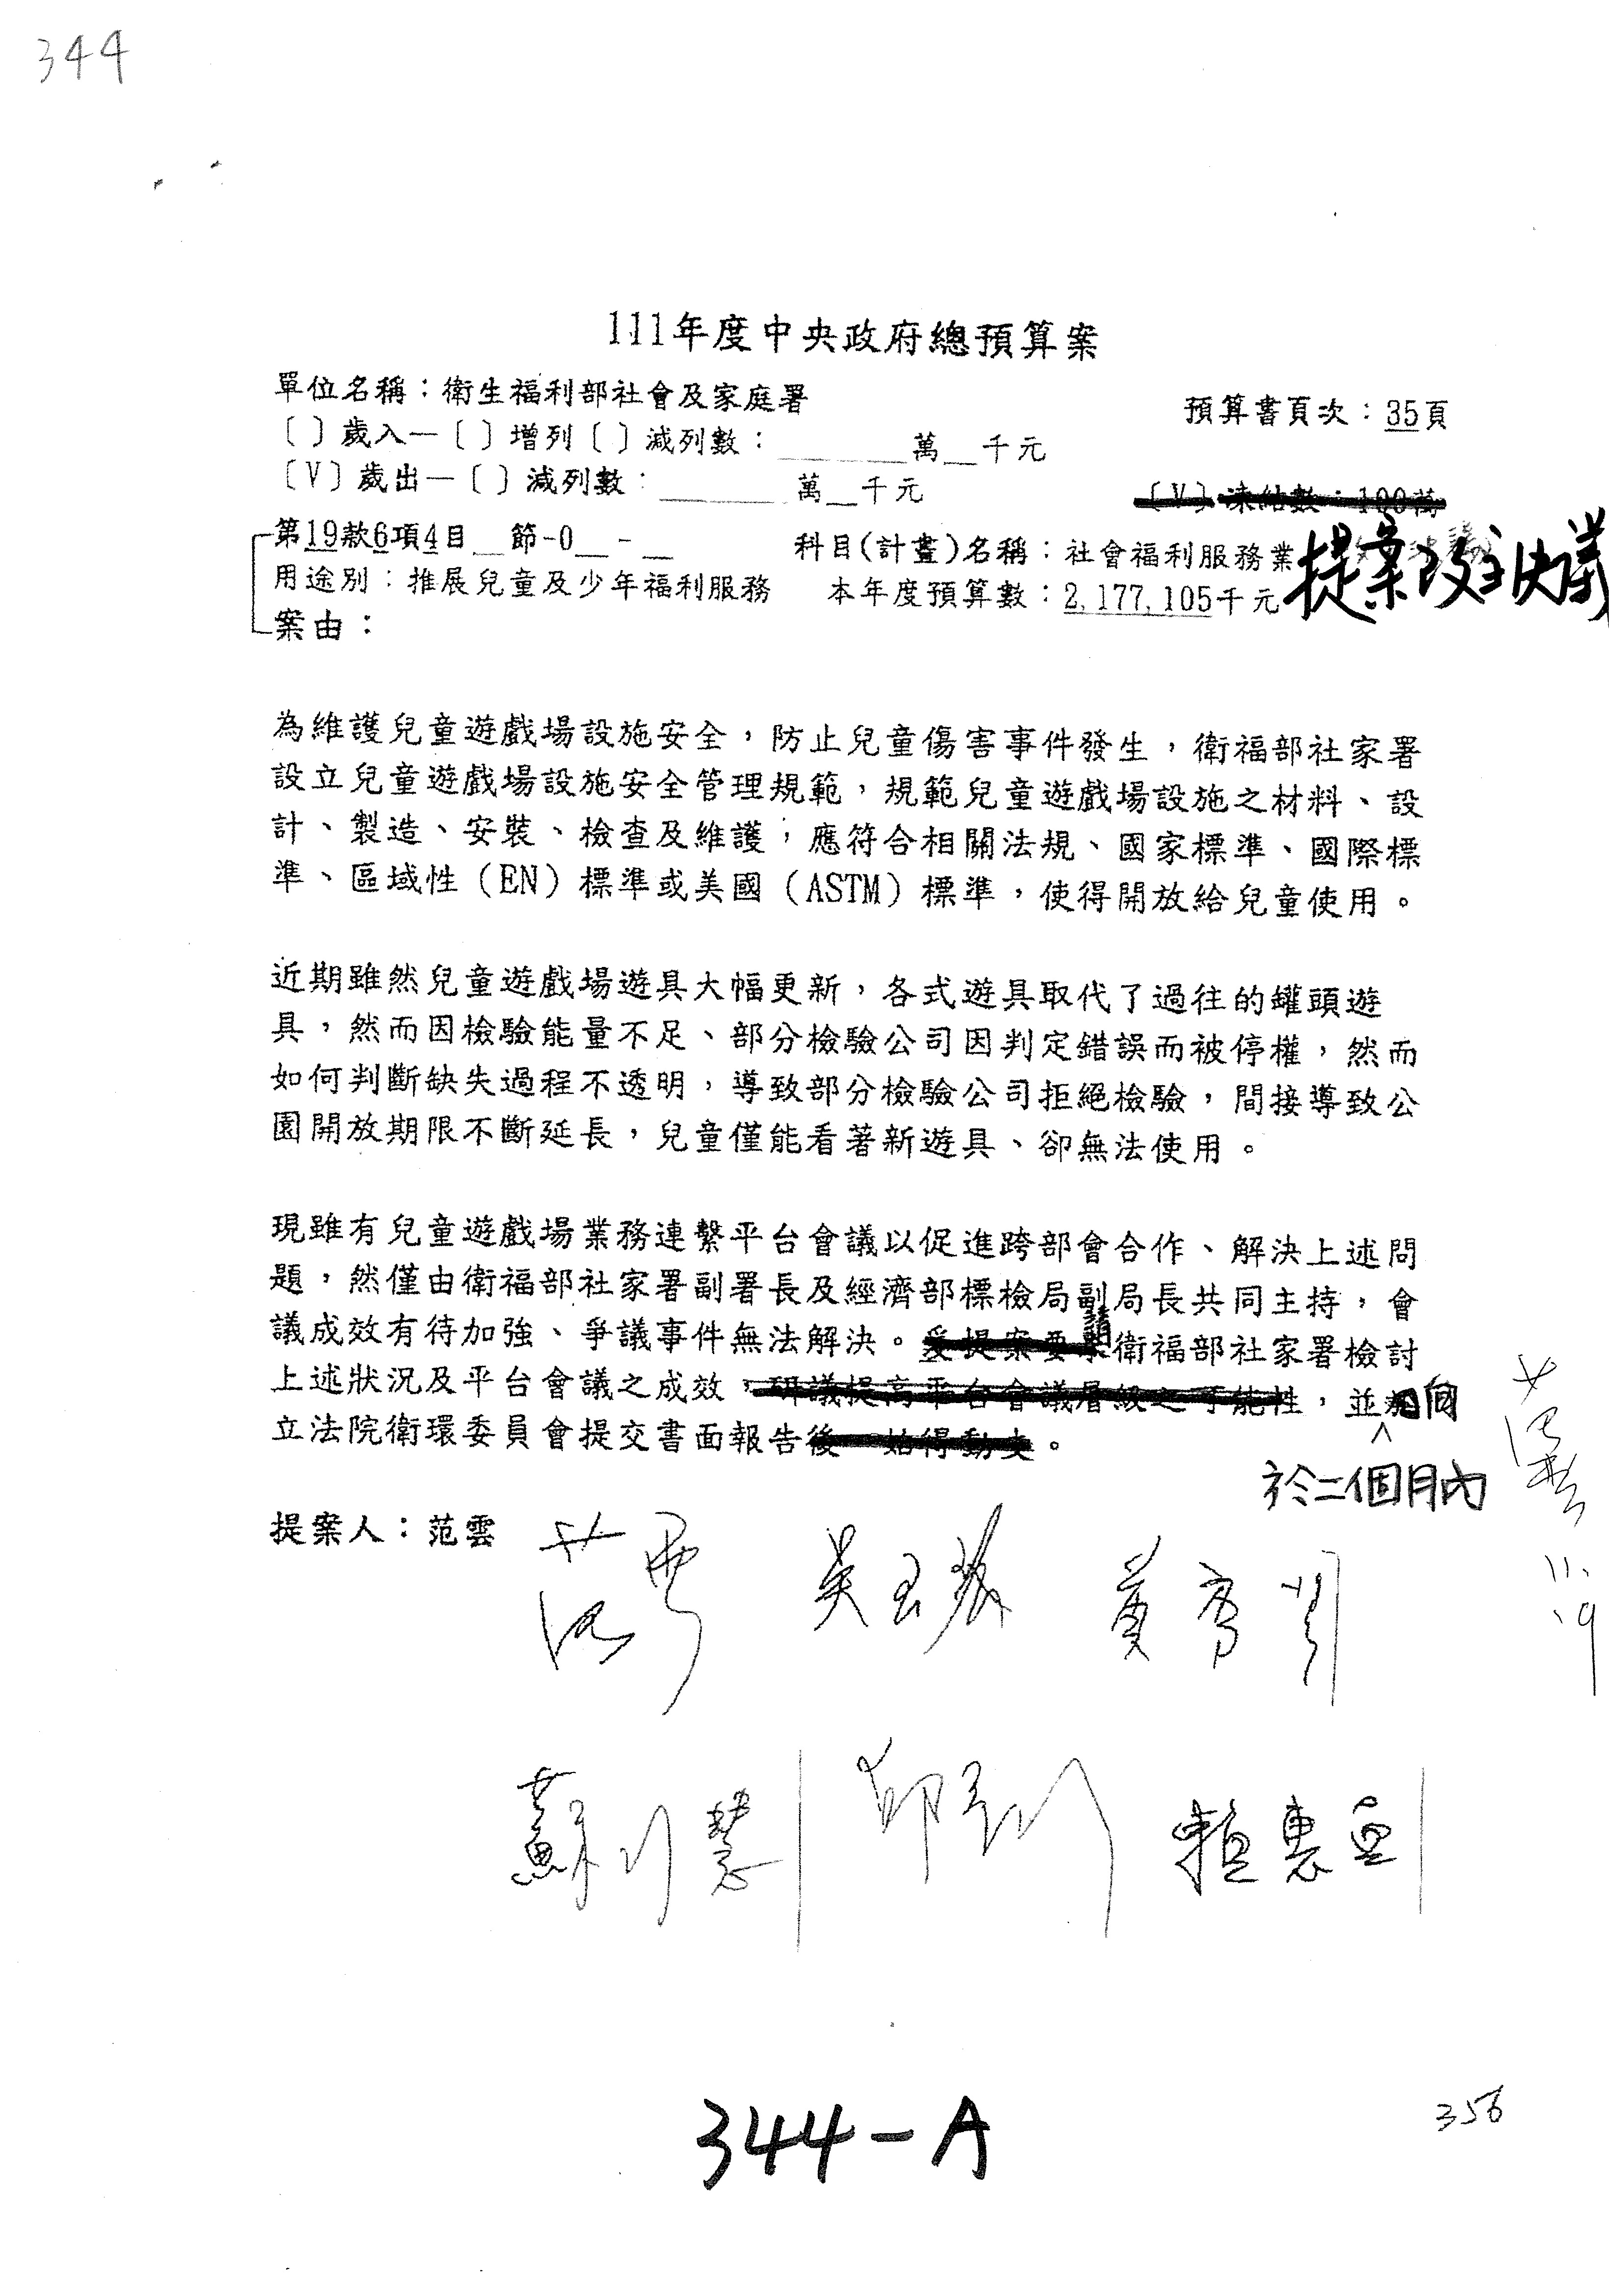 344
111年度中央政府總預算案
單位名稱：衛生福利部社會及家庭署
預算書頁次：35頁
〔〕歲入—〔〕增列〔〕減列數：______萬__千元
〔V〕歲出—〔〕減列數：______萬__千元
〔V〕凍結數：100萬
第19款6項4目__節-0__-__
科目(計畫)名稱：社會福利服務業
提案改主決議
用途別：推展兒童及少年福利服務
本年度預算數：2,177,105千元
案由：
為維護兒童遊戲場設施安全，防止兒童傷害事件發生，衛福部社家署
設立兒童遊戲場設施安全管理規範，規範兒童遊戲場設施之材料、設
計、製造、安裝、檢查及維護，應符合相關法規、國家標準、國際標
準、區域性（EN）標準或美國（ASTM）標準，使得開放給兒童使用。
近期雖然兒童遊戲場遊具大幅更新，各式遊具取代了過往的罐頭遊
具，然而因檢驗能量不足、部分檢驗公司因判定錯誤而被停權，然而
如何判斷缺失過程不透明，導致部分檢驗公司拒絕檢驗，間接導致公
園開放期限不斷延長，兒童僅能看著新遊具、卻無法使用。
現雖有兒童遊戲場業務連繫平台會議以促進跨部會合作、解決上述問
題，然僅由衛福部社家署副署長及經濟部標檢局副局長共同主持，會
議成效有待加強、爭議事件無法解決。爰提案要求請衛福部社家署檢討
上述狀況及平台會議之成效，研議提高平台會議層級之可能性，並向
於二個月內
立法院衛環委員會提交書面報告後，始得動支。
提案人：范雲
范雲
11.19
范雲
吳玉琴
黃秀芳
蘇巧慧
邱泰源
賴惠員
344-A
356